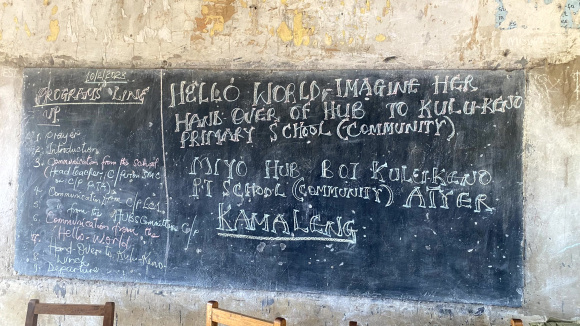 10/2/2023
PROGRAMS LINE
UP
1. Prayer
2. Introduction
3. Communication from the school
(Headteacher, C/person SMC
C/P PTA)
4. Communication from C/P LC1
5. from the HUBS Committee C/p
6. Communication from the
Hello-World
7. Hand Over to Kulu-Keno
8. Lunch
9. Departure
HELLO WORLD-IMAGINE HER
HAND OVER OF HUB TO KULU-KENO
PRIMARY SCHOOL (COMMUNITY)
MIYO HUB BOT KULU-KENO
P7 SCHOOL (COMMUNITY) ATYER
KAMALENG